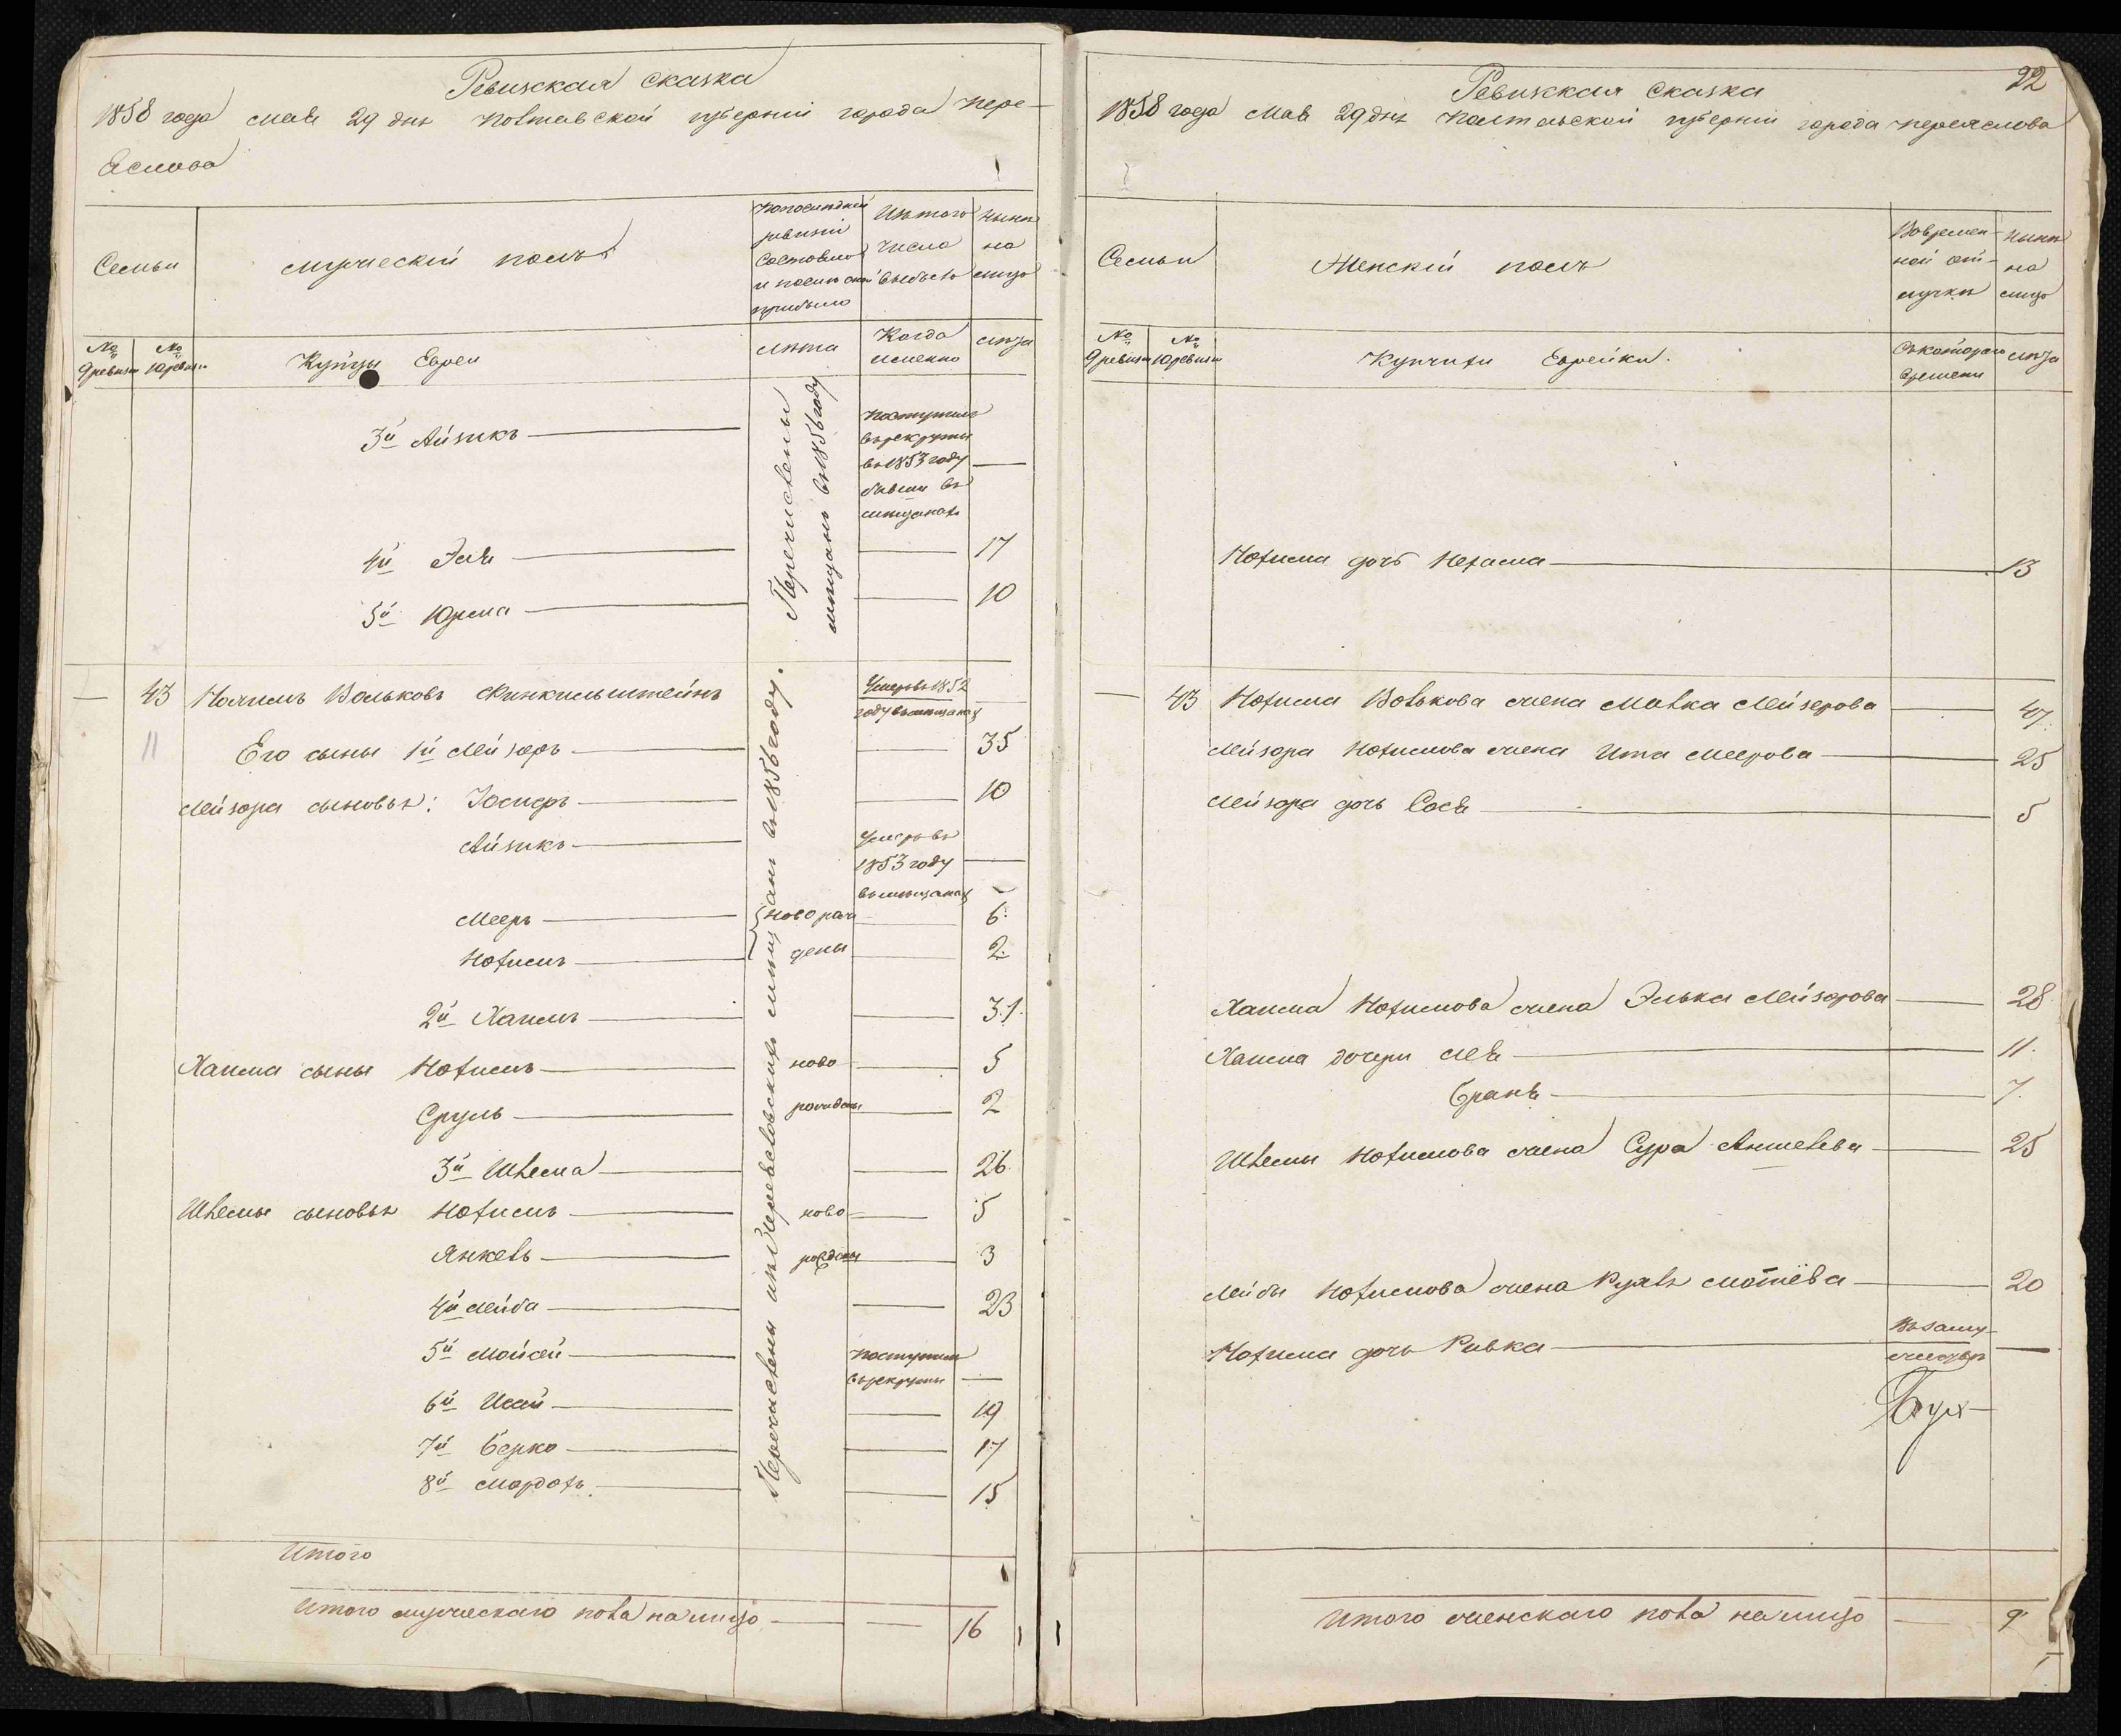 Ревизская сказка
1858 года мая 29 дня Полтавской губерніи города Пере-
яслова
Семьи
мужескій полъ
По последней ревизіи состояло и после оной прибыло
Изъ того числа выбыло
Ныне на лицо
№ 9 ревизіи
№ 10 ревизіи
Купцы Евреи
лета
Когда именно
лета
Перечислены
мещанъ въ 1856 году
3й Айзикъ —
Поступилъ
въ рекруты
въ 1853 году —
бывши въ
мещанахъ
4й Эля — — 17
5й Юдма — — 10
— 43 Нохимъ Вольковъ Финкильштейнъ
Умеръ въ 1852
году въ мещанах
11 Его сыны 1й Лейзоръ — — 35
Лейзора сыновья: Іосифъ — — 10
Айзикъ —
Умеръ въ
1853 году —
въ мещанах
Мееръ — новорож — 6
Нохимъ — дены — 2
2й Хаимъ — — 31
Хаима сыны Нохимъ — ново — 5
Сруль — рожденны — 2
3й Шлема — — 26
Шлемы сыновья Нохимъ — ново — 5
Янкель — рождены — 3
4й Лейба — — 23
5й Мойсей — Поступилъ
въ рекруты —
6й Исай — — 19
7й Берко — — 17
8й Мордохъ — — 15
Перечислены изъ Переяславскихъ мещанъ въ 1856 году.
Итого
Итого мужескаго пола на лицо — — 16
22
Ревизская сказка
1858 года мая 29 дня Полтавской губерніи города Переяслова
Семьи
Женскій полъ
Во времен-
ной от-
лучки
Ныне
на
лицо
№ 9 ревизіи
№ 10 ревизіи
Купчихи Еврейки.
Съ котораго
времени
лета
Нохима дочь Нехама — 13
— 43 Нохима Волькова жена Малка Лейзерова — 47
Лейзора Нохимова жена Ита Меерова — 25
Лейзора дочь Сося — 5
Хаима Нохимова жена Элька Лейзорова — 28
Хаима дочери Лея — 11
Браня — 7
Шлемы Нохимова жена Сура Аншелева — 25
Лейбы Нохимова жена Рухля Мотелева — 20
Нохима дочь Ривка —
Въ заму-
жестве —
Итого женскаго пола на лицо — 9